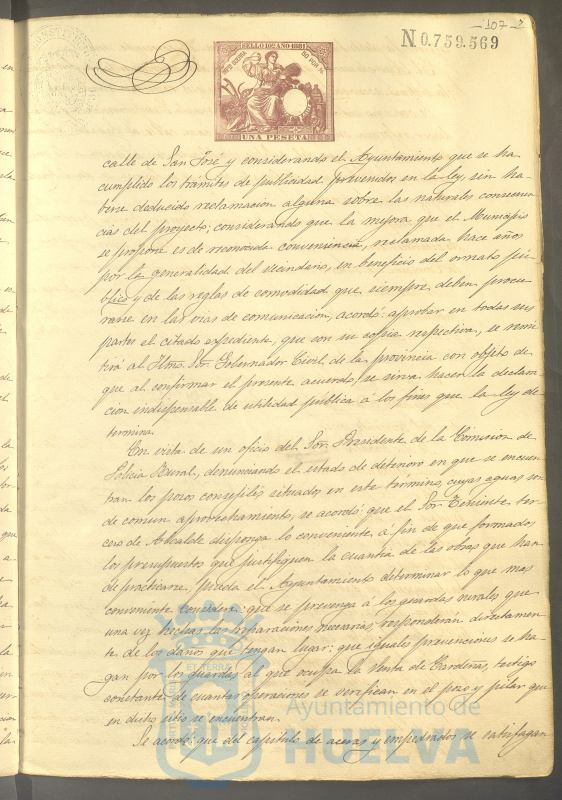 107
N.0.759.569
SELLO 10º AÑO 1881
UNA PESETA
calle de San José y considerando el Ayuntamiento que se ha
cumplido los trámites de publicidad prevenidos en la ley sin ha
berse deducido reclamacion alguna sobre las naturales consecuen
cias del proyecto; considerando que la mejora que el Municipio
se propone es de reconocida conveniencia, reclamada hace años
por la generalidad del vecindario, en beneficio del ornato pú
blico y de las reglas de comodidad que siempre deben procu
rarse en las vias de comunicacion, acordó: aprobar en todas sus
partes el citado expediente, que con su copia respectiva, se remi
tirá al Iltmo. Sr. Gobernador Civil de la provincia con objeto de
que al confirmar el presente acuerdo, se sirva hacer la declara
cion indispensable de utilidad publica á los fines que la ley de
termina.
En vista de un oficio del Sor. Presidente de la Comision de
Policia Rural, denunciando el estado de deterioro en que se encuen
tran los pozos consejiles situados en este término, cuyas aguas son
de comun aprovechamiento, se acordó: que el Sor. Teniente ter
cero de Alcalde disponga lo conveniente á fin de que formados
los presupuestos que justifiquen la cuantia de las obras que han
de practicarse, pueda el Ayuntamiento determinar lo que mas
conveniente considere: que se prevenga á los guardas rurales que
una vez hechas las reparaciones necesarias, responderán directamen
te de los daños que tengan lugar: que iguales prevenciones se ha
gan por los guardas al que ocupa la Venta de Cardenas, testigo
constante de cuantas operaciones se verifican en el pozo y pilar que
en dicho sitio se encuentran.
Se acordó que del capitulo de aceras y empedrados se satisfagan
Ayuntamiento de
HUELVA